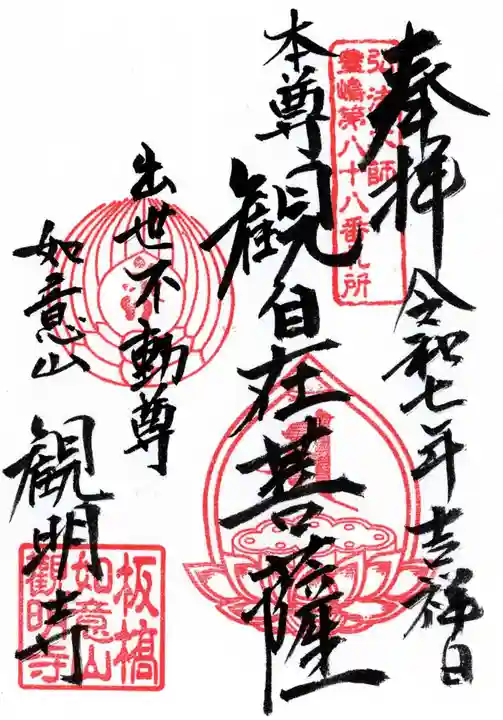 奉拝
令和七年吉祥日
弘法大師
豊嶋第八十八番札所
本尊
觀自在菩薩
出世不動尊
如意山
觀明寺
板橋
如意山
觀明寺